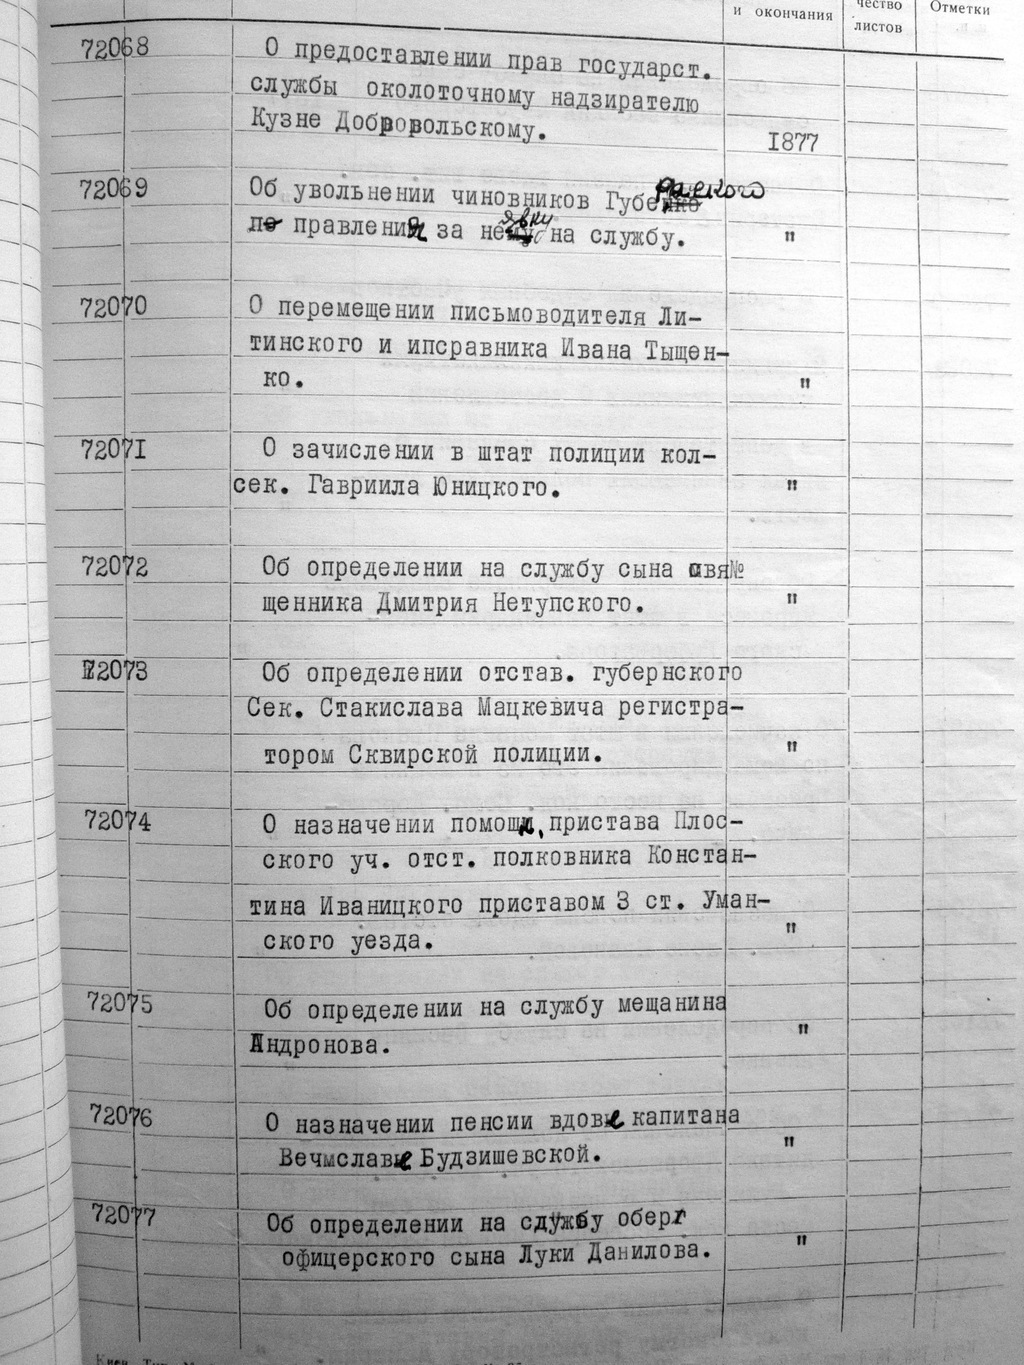 и окончания
чество
листов
Отметки
72068
О предоставлении прав государст.
службы околоточному надзирателю
Кузне Добровольскому.
1877
72069
Об увольнении чиновников Губернского
правления за неявку на службу.
"
72070
О перемещении письмоводителя Ли-
тинского и ипсравника Ивана Тыщен-
ко.
"
72071
О зачислении в штат полиции кол-
сек. Гавриила Юницкого.
"
72072
Об определении на службу сына свя№
щенника Дмитрия Нетупского.
"
72073
Об определении отстав. губернского
Сек. Стакислава Мацкевича регистра-
тором Сквирской полиции.
"
72074
О назначении помощн. пристава Плос-
ского уч. отст. полковника Констан-
тина Иваницкого приставом 3 ст. Уман-
ского уезда.
"
72075
Об определении на службу мещанина
Андронова.
"
72076
О назначении пенсии вдове капитана
Вечмславе Будзишевской.
"
72077
Об определении на службу обер г
офицерского сына Луки Данилова.
"